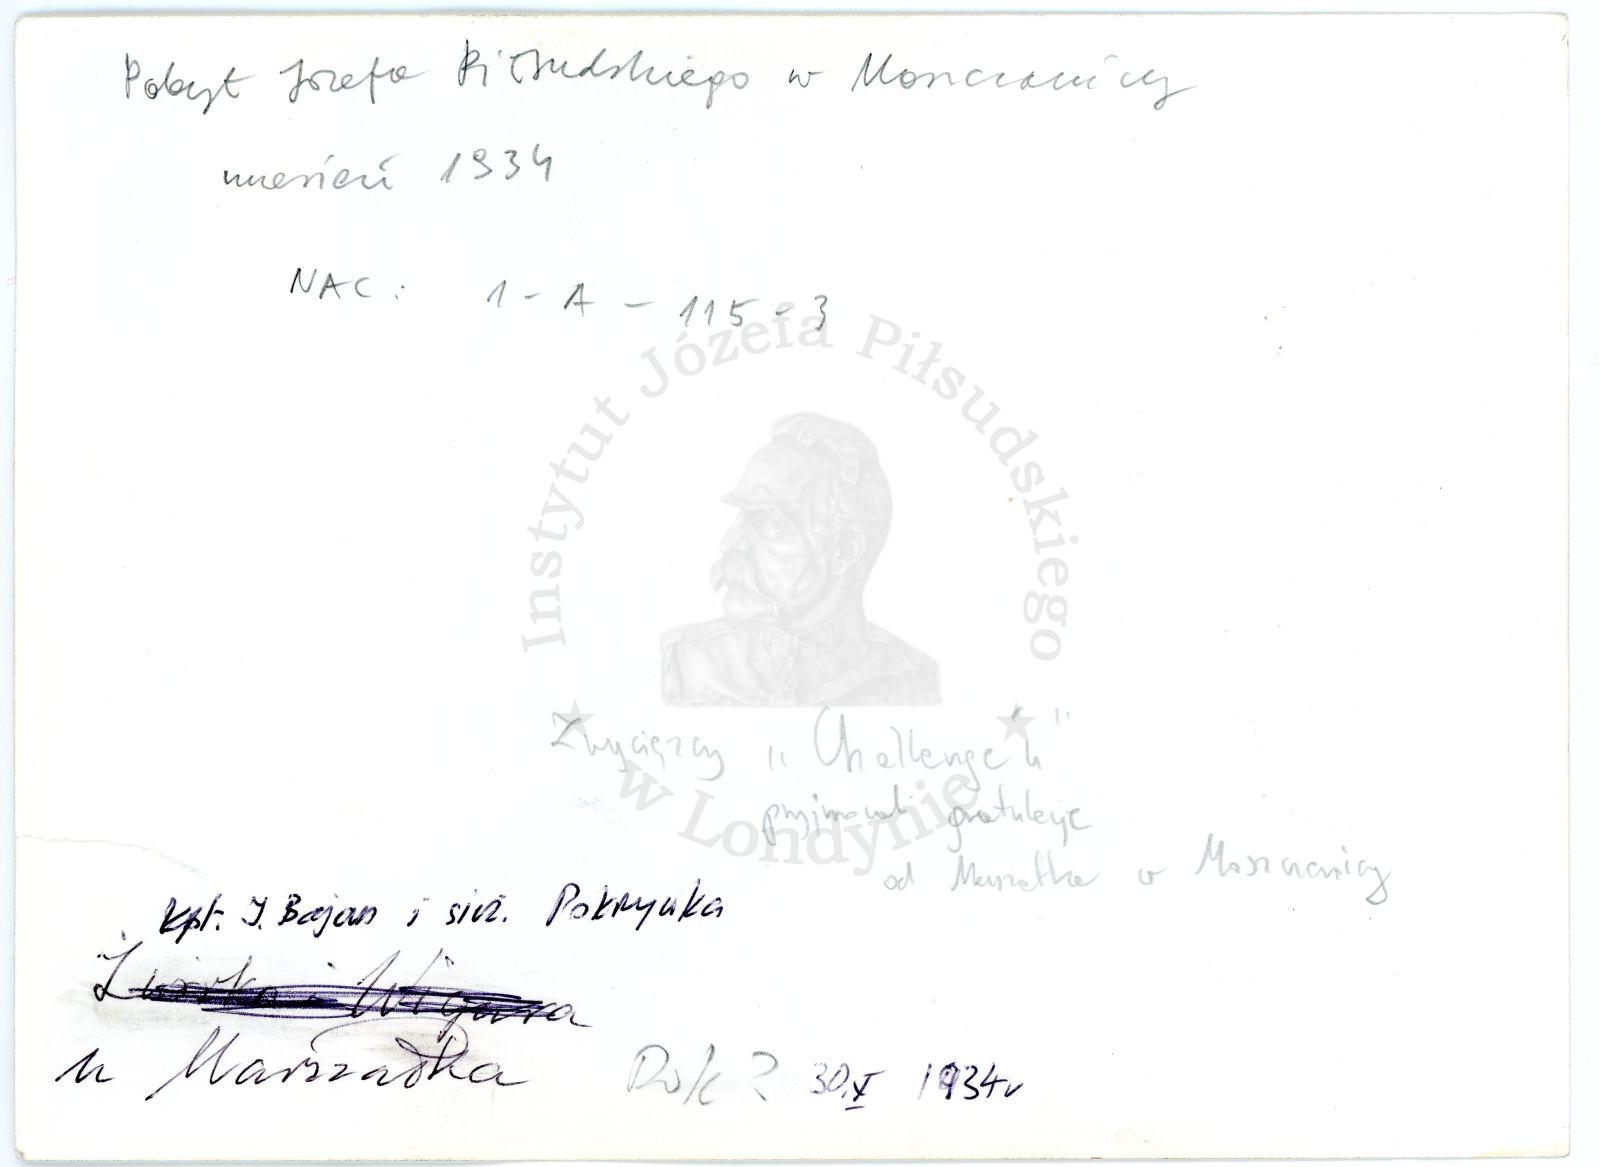 Pobyt Józefa Piłsudskiego w Moszczanicy
wrzesień 1934
NAC: 1-A-115-3
Instytut Józefa Piłsudskiego
w Londynie
Zwycięzcy "Challenge'u"
przyjmowali gratulacje
od Marszałka w Moszczanicy
kpt. J. Bajan i sierż. Pokrzywka
Żwirko i Wigura
u Marszałka Rok? 30.X 1934r